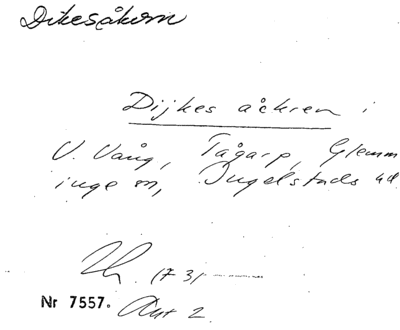 Dikesåkern
Dijkes åckren i
V. Vång, Tågarp, Glemm
inge sn, Ingelstads hd
1731
Nr 7557. Akt 2